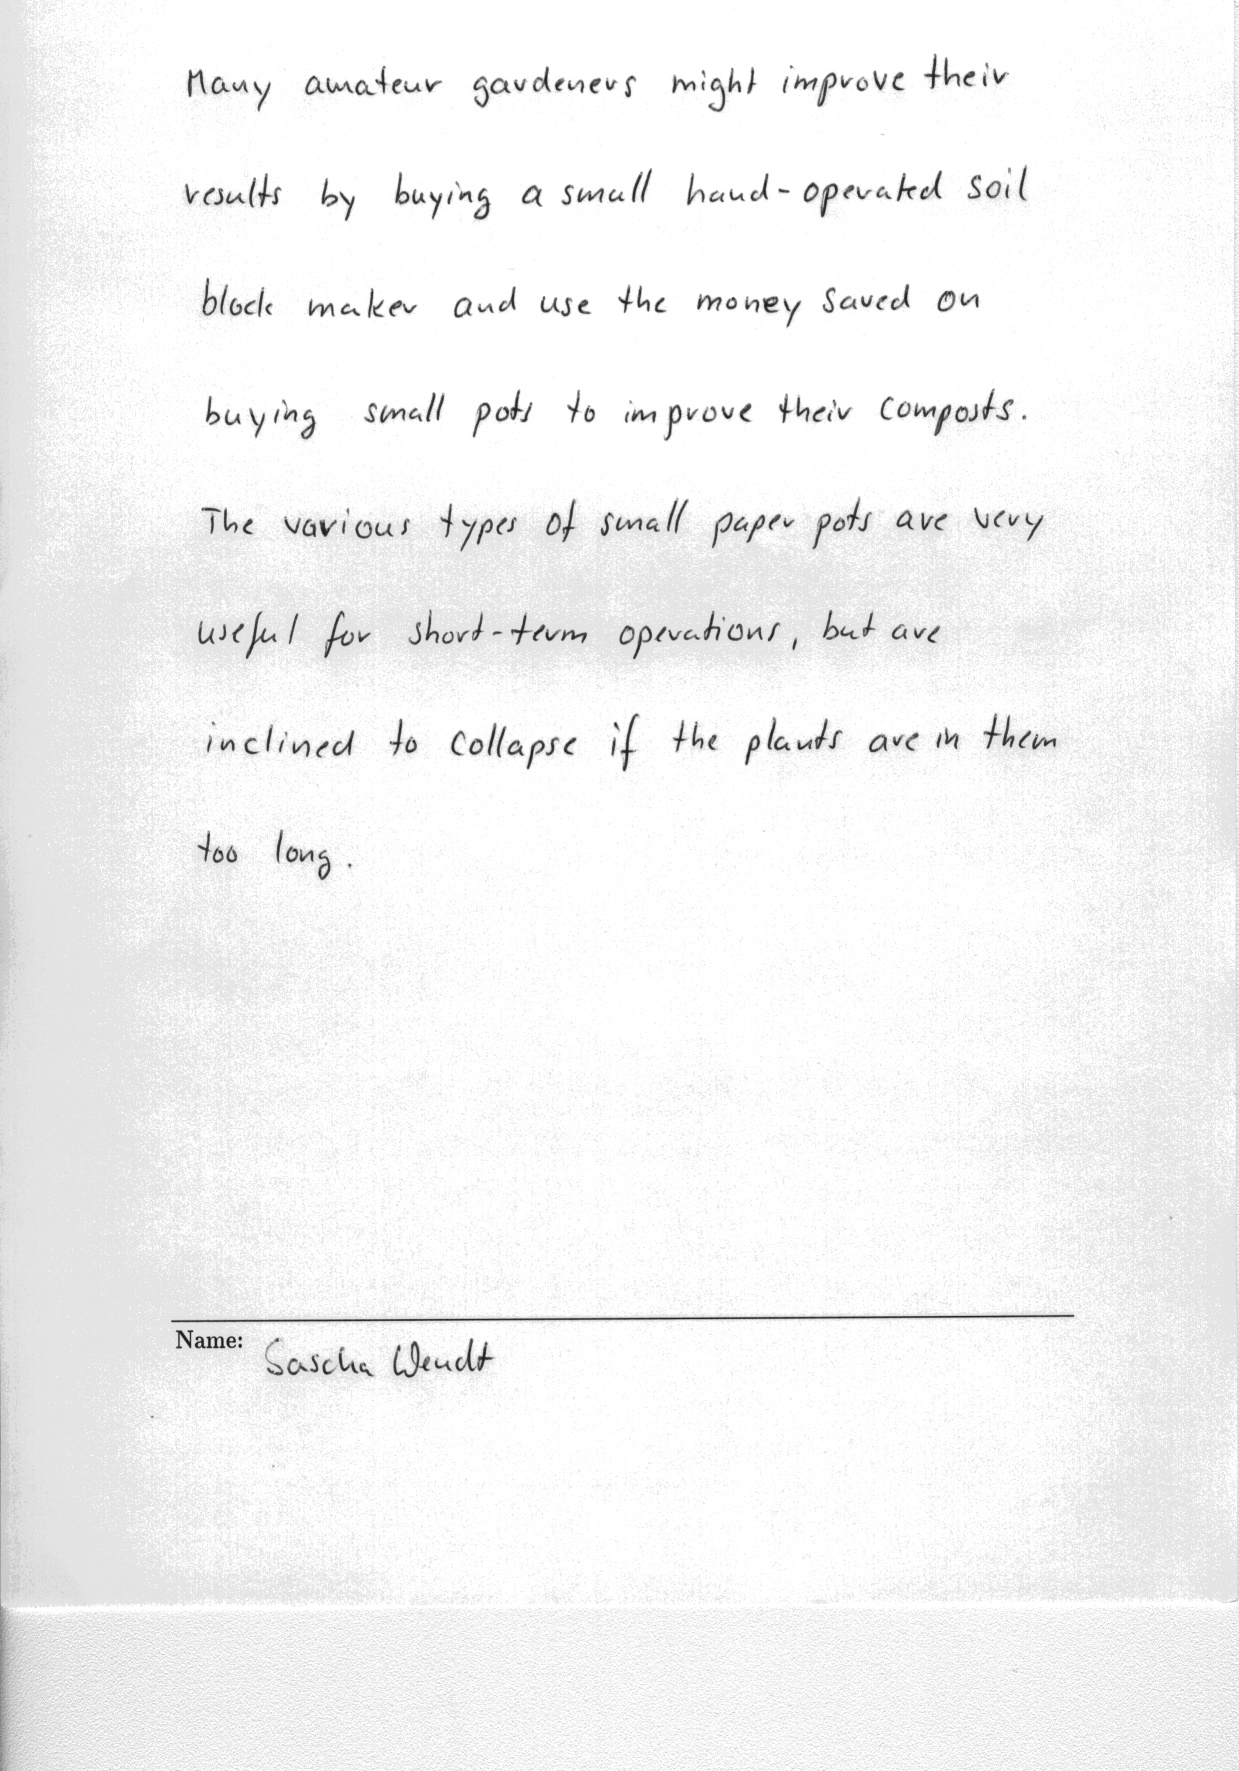 Many amateur gardeners might improve their
results by buying a small hand-operated soil
block maker and use the money saved on
buying small pots to improve their composts.
The various types of small paper pots are very
useful for short-term operations, but are
inclined to collapse if the plants are in them
too long.
Name: Sascha Wendt